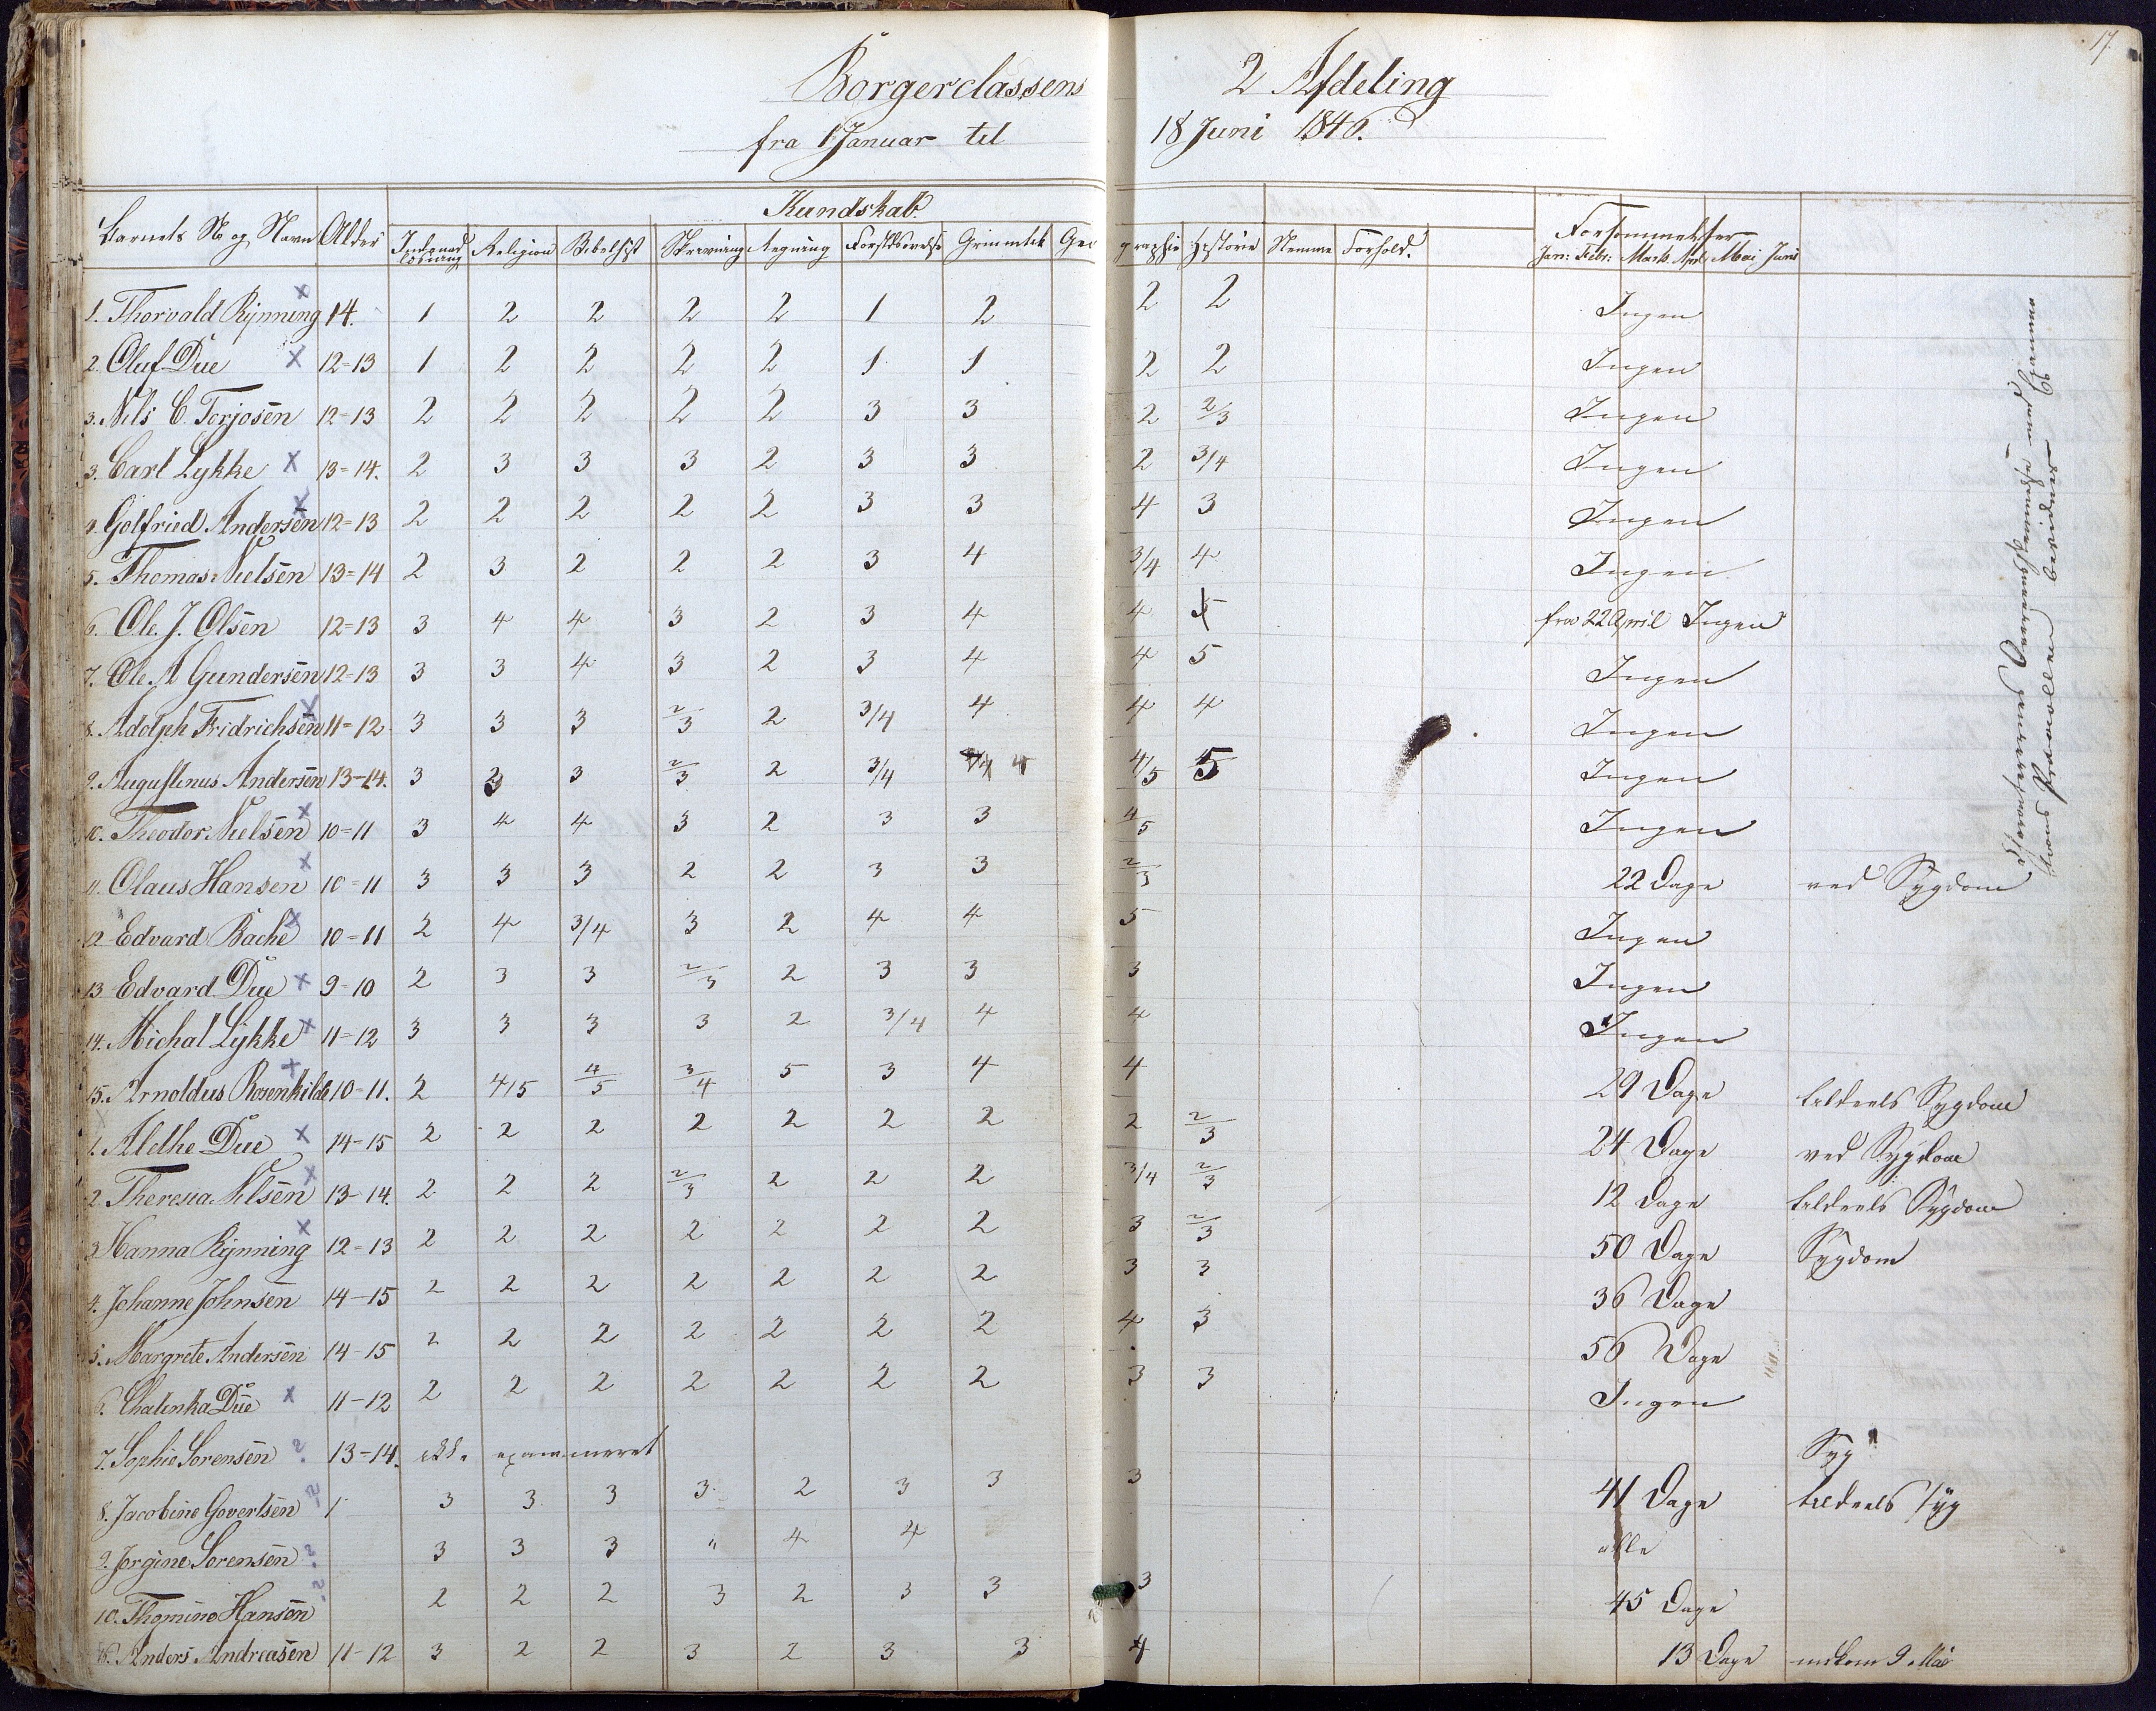 17.
Borgerclassens 2 Afdeling
fra 1 Januar til 18 Juni 1846.
Kundskab.
Barnets No og Navn Alder Religion Bibelhist Skrivning Regning Geographie Historie Nemme Forhold. Forsømmelser
Jan: Febr: Marts April Mai Juni
1. Thorvald Rynning x 14. 1 2 2 2 2 1 2 2 2 Ingen
2. Oluf Due x 12=13 1 2 2 2 2 1 1 2 2 Ingen
3. Nils C. Torjosen 12=13 2 2 2 2 2 3 3 2 2/3 Ingen
3. Carl Lykke x 13=14. 2 3 3 3 2 3 3 2 3/4 Ingen
4. Golfried Andersen x 12=13 2 2 2 2 2 3 3 4 3 Ingen
5. Thomas Nielsen 13=14 2 3 2 2 2 3 4 3/4 4 Ingen
6. Ole J. Olsen 12=13 3 4 4 3 2 3 4 4 5 fra 22 April Ingen
7. Ole A Gundersen 12=13 3 3 4 3 2 3 4 4 5 Ingen
8. Adolph Fridrichsen x 11=12 3 3 3 2/3 2 3/4 4 4 4 Ingen
9. Augustinus Andersen 13-14. 3 3 3 2/3 2 3/4 4 4/5 5 Ingen
10. Theodor Nielsen x 10=11 3 4 4 3 2 3 3 4/5 Ingen
11. Olaus Hansen x 10=11 3 3 3 2 2 3 3 2/3 22 Dage ved Sygdom
12 Edvard Bache x 10=11 2 4 3/4 3 2 4 4 5 Ingen
13 Edvard Due x 9=10 2 3 3 2/3 2 3 3 3 Ingen
14. Michal Lykke x 11=12 3 3 3 3 2 3/4 4 4 Ingen
15. Arnoldus Rosenkilde x 10-11. 2 4/5 4/5 3/4 5 3 4 4 29 Dage tildeels Sygdom
1. Alethe Due x 14-15 2 2 2 2 2 2 2 2 2/3 24 Dage ved Sygdom
2. Theresia Nilsen x 13-14. 2 2 2 2/3 2 2 2 3/4 2/3 12 Dage tildeels Sygdom
3 Hanna Rynning x 12=13 2 2 2 2 2 2 2 3 2/3 50 Dage Sygdom
4. Johanne Johnsen 14-15 2 2 2 2 2 2 2 3 3 36 Dage
5. Margrete Andersen 14-15 2 2 2 2 2 2 2 4 3 56 Dage
6. Chatinka Due x 11-12 2 2 2 2 2 2 2 3 3 Ingen
7. Sophie Sorensen ? 13-14. ikke examineret Syg
8. Jacobine Govertsen ? 1 3 3 3 3 2 3 3 3 41 Dage tildeels syg
9. Jorgine Sorensen ? 3 3 3 " 4 4 alle
10. Thomine Hansen ? 2 2 2 3 2 3 3 3 45 Dage
16. Anders Andreasen 11-12 3 2 2 3 2 3 3 4 13 Dage indkom 9 Mai